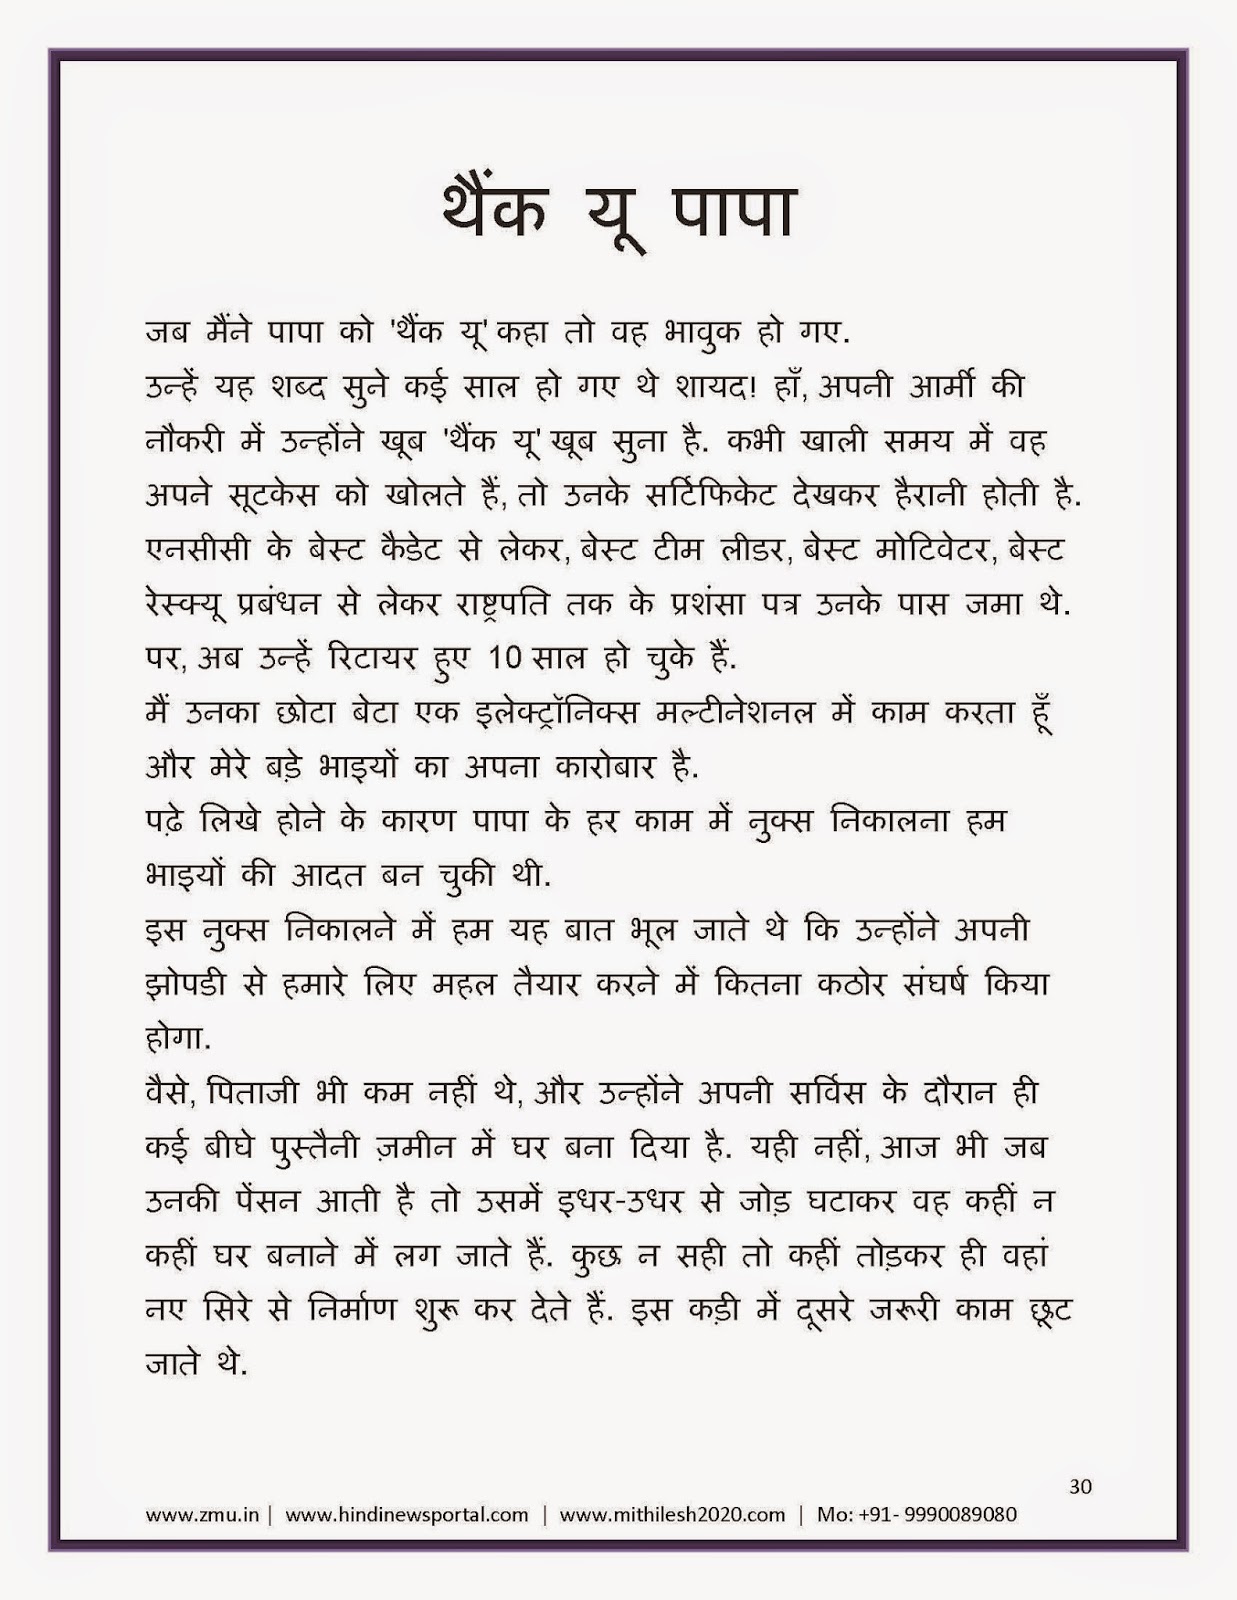 थैंक यू पापा
जब मैंने पापा को 'थैंक यू' कहा तो वह भावुक हो गए.
उन्हें यह शब्द सुने कई साल हो गए थे शायद! हाँ, अपनी आर्मी की
नौकरी में उन्होंने खूब 'थैंक यू' खूब सुना है. कभी खाली समय में वह
अपने सूटकेस को खोलते हैं, तो उनके सर्टिफिकेट देखकर हैरानी होती है.
एनसीसी के बेस्ट कैडेट से लेकर, बेस्ट टीम लीडर, बेस्ट मोटिवेटर, बेस्ट
रेस्क्यू प्रबंधन से लेकर राष्ट्रपति तक के प्रशंसा पत्र उनके पास जमा थे.
पर, अब उन्हें रिटायर हुए 10 साल हो चुके हैं.
मैं उनका छोटा बेटा एक इलेक्ट्रॉनिक्स मल्टीनेशनल में काम करता हूँ
और मेरे बड़े भाइयों का अपना कारोबार है.
पढ़े लिखे होने के कारण पापा के हर काम में नुक्स निकालना हम
भाइयों की आदत बन चुकी थी.
इस नुक्स निकालने में हम यह बात भूल जाते थे कि उन्होंने अपनी
झोपडी से हमारे लिए महल तैयार करने में कितना कठोर संघर्ष किया
होगा.
वैसे, पिताजी भी कम नहीं थे, और उन्होंने अपनी सर्विस के दौरान ही
कई बीघे पुस्तैनी ज़मीन में घर बना दिया है. यही नहीं, आज भी जब
उनकी पेंसन आती है तो उसमें इधर-उधर से जोड़ घटाकर वह कहीं न
कहीं घर बनाने में लग जाते हैं. कुछ न सही तो कहीं तोड़कर ही वहां
नए सिरे से निर्माण शुरू कर देते हैं. इस कड़ी में दूसरे जरूरी काम छूट
जाते थे.
30
www.zmu.in | www.hindinewsportal.com | www.mithilesh2020.com | Mo: +91- 9990089080